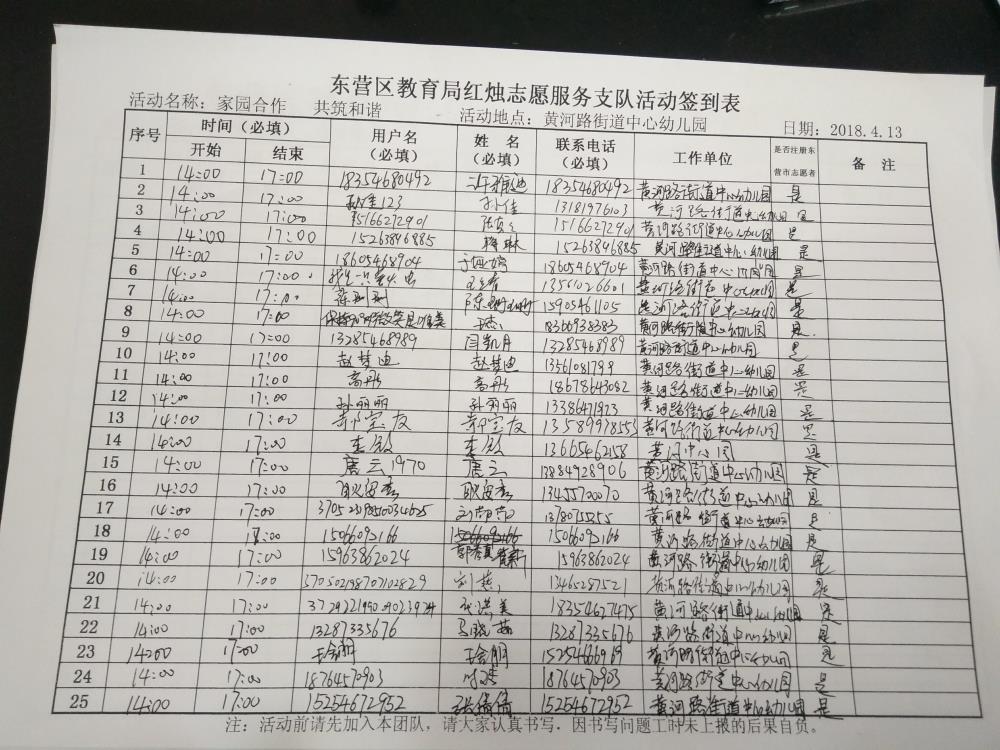 东营区教育局红烛志愿服务支队活动签到表
活动名称：家园合作 共筑和谐 活动地点：黄河路街道中心幼儿园 日期：2018.4.13
序号 时间（必填） 用户名（必填） 姓 名（必填） 联系电话（必填） 工作单位 是否注册东营市志愿者 备 注
开始 结束
1 14:00 17:00 18354680492 18354680492 黄河路街道中心幼儿园 是
2 14:00 17:00 孙佳123 孙佳 13181976103 黄河路街道中心幼儿园 是
3 14:00 17:00 15166272901 15166272901 黄河路街道中心幼儿园 是
4 14:00 17:00 15263896885 梅琳 15263896885 黄河路街道中心幼儿园 是
5 14:00 17:00 18605468904 18605468904 黄河路街道中心幼儿园 是
6 14:00 17:00 13561026601 黄河路街道中心幼儿园 是
7 14:00 17:00 陈珊珊 陈珊珊 15905461105 黄河路街道中心幼儿园 是
8 14:00 17:00 18366938383 黄河路街道中心幼儿园 是
9 14:00 17:00 13285468989 闫凯月 13285468989 黄河路街道中心幼儿园 是
10 14:00 17:00 赵梦迪 赵梦迪 13561081799 黄河路街道中心幼儿园 是
11 14:00 17:00 高彤 高彤 18678643082 黄河路街道中心幼儿园 是
12 14:00 17:00 孙丽丽 孙丽丽 13386471923 黄河路街道中心幼儿园 是
13 14:00 17:00 宝友 宝友 13589978553 黄河路街道中心幼儿园 是
14 14:00 17:00 李欣 李欣 13665462158 黄河中心园 是
15 14:00 17:00 唐云1970 唐云 13884928906 黄河路街道中心幼儿园 是
16 14:00 17:00 耿安 耿安 13455720070 黄河路街道中心幼儿园 是
17 14:00 17:00 黄河路街道中心幼儿园 是
18 14:00 17:00 15066095166 15066095166 黄河路街道中心幼儿园 是
19 14:00 17:00 15963862024 15963862024 黄河路街道中心幼儿园 是
20 14:00 17:00 370502198707102829 刘燕 13465287521 黄河路街道中心幼儿园 是
21 14:00 17:00 张洪美 18354627475 黄河路街道中心幼儿园 是
22 14:00 17:00 13287335676 马晓茹 13287335676 黄河路街道中心幼儿园 是
23 14:00 17:00 王会朋 王会朋 15254666969 黄河路街道中心幼儿园 是
24 14:00 17:00 18764570903 18764570903 黄河路街道中心幼儿园 是
25 14:00 17:00 15254672952 张倩倩 15254672952 黄河路街道中心幼儿园 是
注：活动前请先加入本团队，请大家认真书写．因书写问题工时未上报的后果自负。